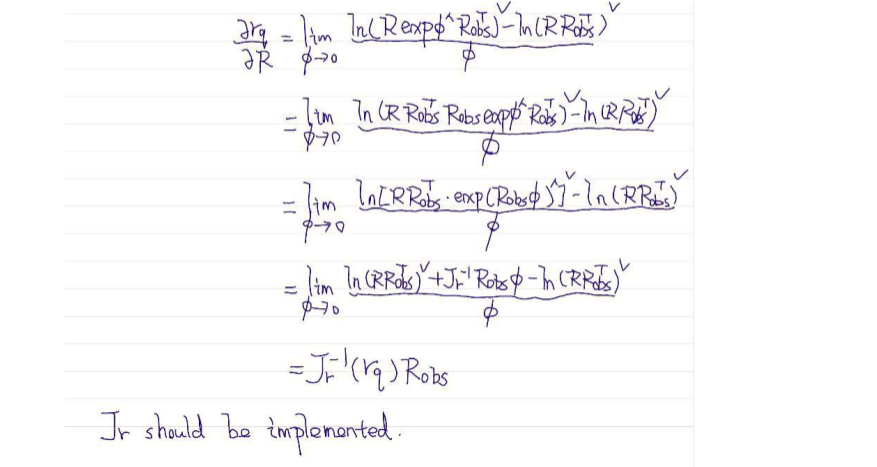 ∂rq/∂R = lim ϕ→0 (ln(R expϕ^ Robs^T)^∨ - ln(R Robs^T)^∨)/ϕ
= lim ϕ→0 (ln(R Robs^T Robs expϕ^ Robs^T)^∨ - ln(R Robs^T)^∨)/ϕ
= lim ϕ→0 (ln[R Robs^T · exp(Robsϕ)^]^∨ - ln(R Robs^T)^∨)/ϕ
= lim ϕ→0 (ln(R Robs^T)^∨ + Jr^-1 Robs ϕ - ln(R Robs^T)^∨)/ϕ
= Jr^-1(rq) Robs
Jr should be implemented.